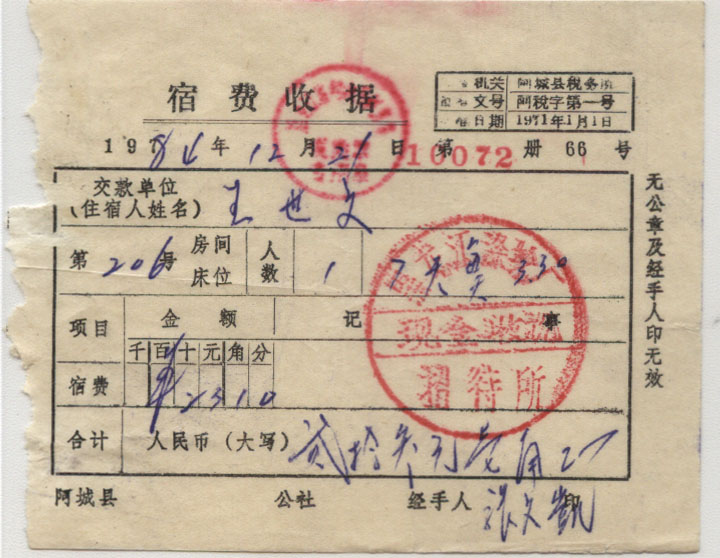 宿费收据
机关 阿城县税务所
文号 阿税字第一号
日期 1971年1月1日
1978 84年12月21日 第10072册66号
交款单位
(住宿人姓名) 王世文
第206号 房间床位 人数 1 7天 每天 3.30
项目 金额 记事
千百十元角分
宿费 ¥2310
合计 人民币(大写) 贰拾叁元壹角
现金收讫
招待所
阿城县 公社 经手人 印
无公章及经手人印无效